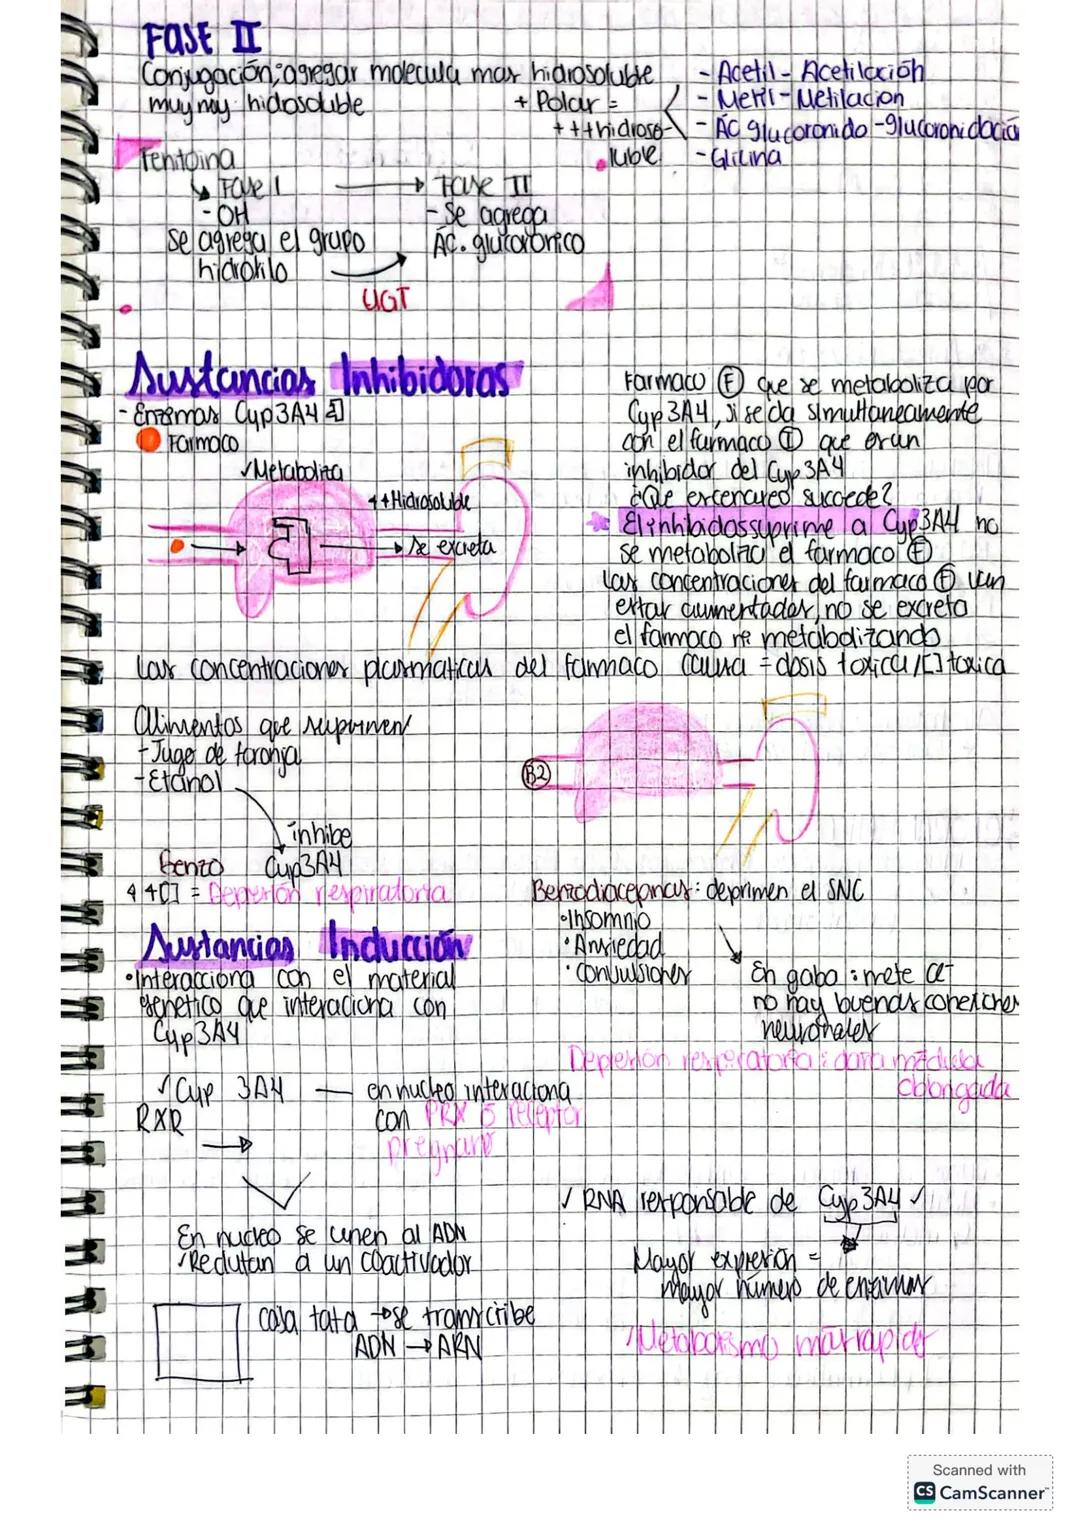 FASE II
Conjugación; agregar molecula mas hidrosoluble
muy muy hidosoluble
+ Polar =
+++hidroso-
luble
- Acetil - Acetilación
- Metil - Metilacion
- Ác glucoronido - glucoronidación
- Glicina
Fentoina
Fase I → Fase II
- OH
Se agrega el grupo
hidrofilo
- Se agrega
Ác. glucoronico
UGT
Sustancias Inhibidoras
- Enzimas Cyp3A4
Farmaco
✓Metaboliza
++Hidrosoluble
Se excreta
Farmaco Ⓕ que se metaboliza por
Cyp3A4, si se da simultaneamente
con el farmaco Ⓘ que era un
inhibidor del Cyp3A4
¿Que escenareo succede?
El inhibidos suprime a Cyp3A4 no
se metaboliza el farmaco Ⓕ
Las concentraciones del farmaco Ⓕ van
estar aumentadas, no se excreta
el farmaco metabolizando
Las concentraciones plasmaticas del farmaco causa = dosis toxica /[] toxica
Alimentos que suprimen
- Jugo de toronja
- Etanol
inhibe
Cyp3A4
Benzo
[] = Depresión respiratoria
BZ
Benzodiacepinas: deprimen el SNC
• Insomnio
• Ansiedad
• Convulsiones
En gaba: mete Cl-
no hay buenas conexiones
neuronales
Depresion respiratoria: dana médula
oblongada
Sustancias Inducción
• Interacciona con el material
genetico que interaciona con
Cyp3A4
✓Cyp 3A4 — en nucleo interaciona
con PRX ó receptor
pregnano
RXR
→
En nucleo se unen al ADN
✓Reclutan a un coactivador
casa tata → se transcribe
ADN → ARN
✓ RNA responsable de Cyp3A4 ✓
Mayor expresion =
mayor número de enzimas
✓Metabolismo mas rapido
Scanned with
CS CamScanner